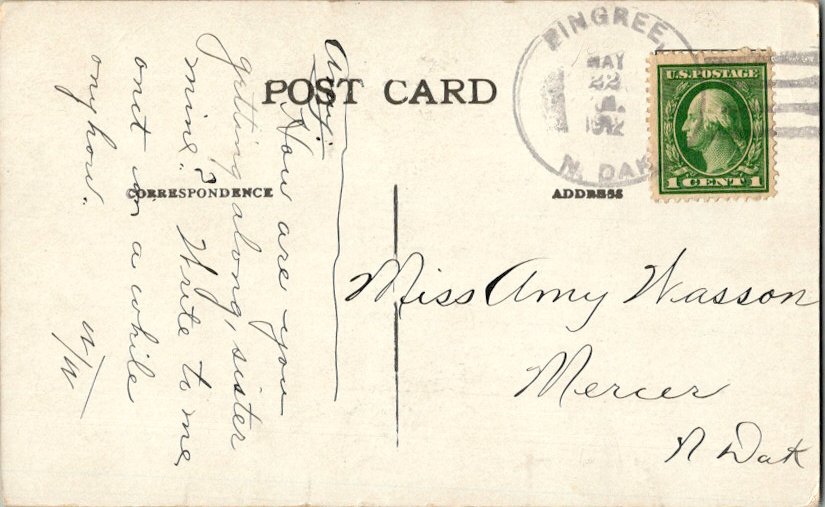 POST CARD
CORRESPONDENCE
ADDRESS
PINGREE,
MAY
22
1912
N. DAK.
U.S. POSTAGE
1 CENT 1
Amy:
How are you
getting along, sister
mine? Write to me
onct in a while
anyhow.
Miss Amy Wasson
Mercer
N Dak